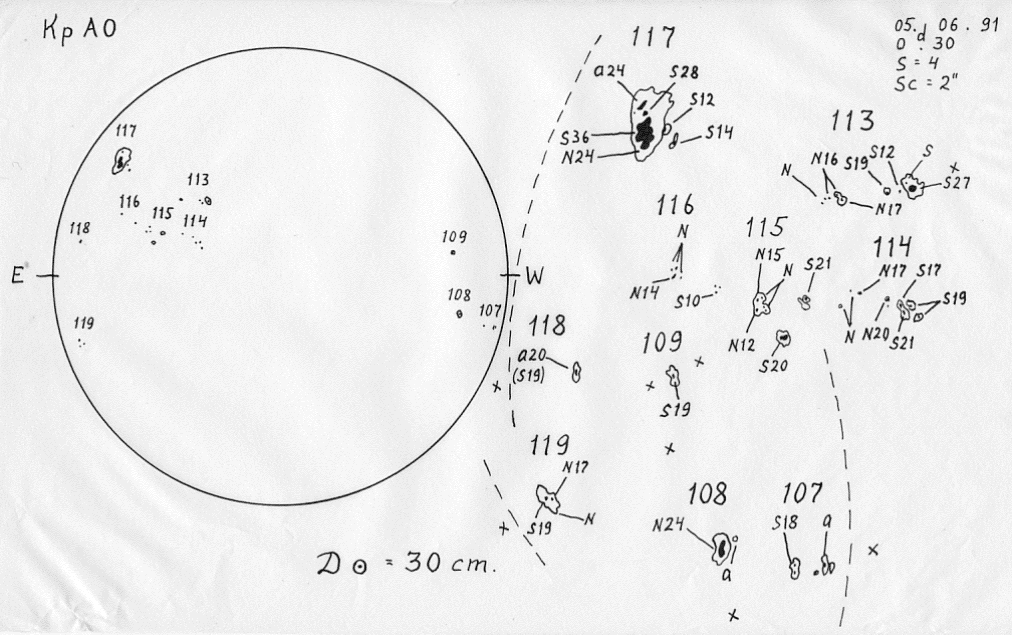 Kp AO
05. 06. 91
0 d. 30
S = 4
Sc = 2"
117
a24
S28
S12
S14
S36
N24
113
N
N16
S19
S12
S
S27
N17
117
113
116
115
114
118
109
108
107
119
E
W
116
N
N14
S10
115
N15
N
S21
N12
S20
114
N17
S17
S19
N
N20
S21
118
a20
(S19)
109
S19
119
N17
S19
N
108
N24
a
107
S18
a
D⊙ = 30 cm.